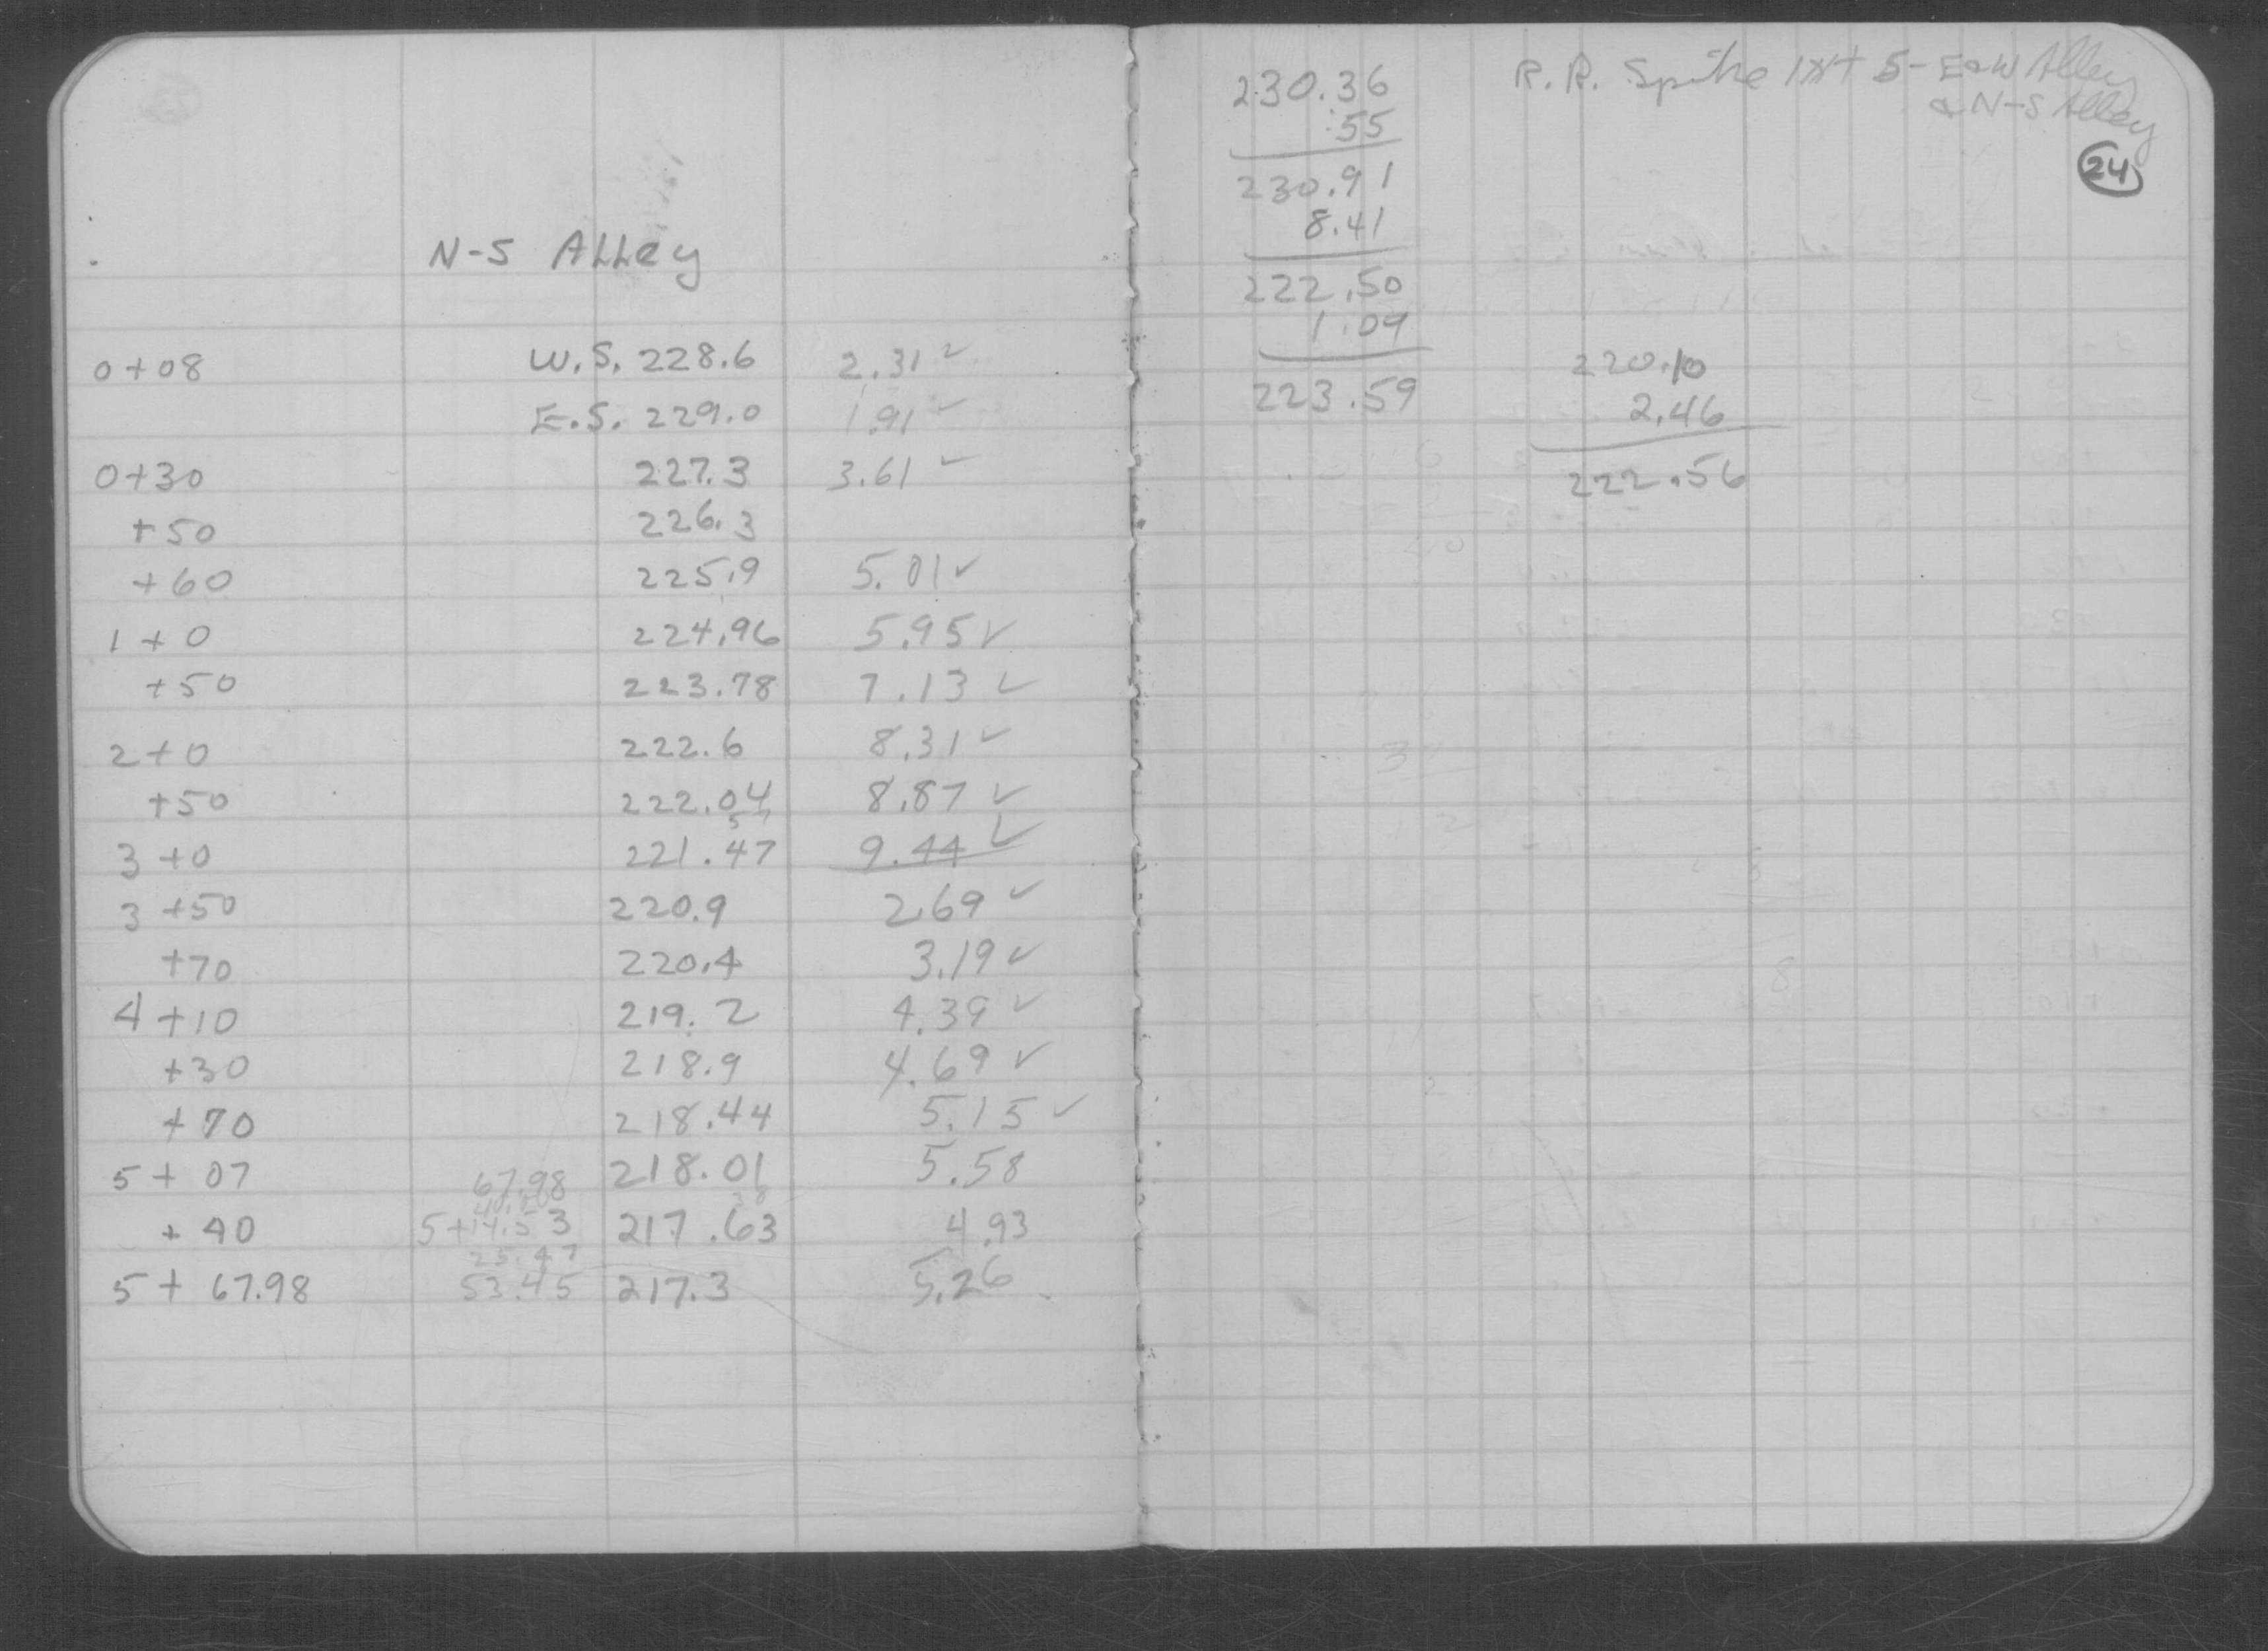 N-S Alley
0+08 W.S. 228.6 2.31 ✓
E.S. 229.0 1.91 ✓
0+30 227.3 3.61 ✓
+50 226.3
+60 225.9 5.01 ✓
1+0 224.96 5.95 ✓
+50 223.78 7.13 ✓
2+0 222.6 8.31 ✓
+50 222.04 8.87 ✓
3+0 221.47 9.44 ✓
3+50 220.9 2.69 ✓
+70 220.4 3.19 ✓
4+10 219.2 4.39 ✓
+30 218.9 4.69 ✓
+70 218.44 5.15 ✓
5+07 67.98 218.01 5.58
+40 5+14.53 217.63 4.93
25.47
5+67.98 53.45 217.3 5.26
R.R. Spike 1st S- E-W Alley
& N-S Alley
24
230.36
.55
230.91
8.41
222.50
1.09
223.59
220.10
2.46
222.56